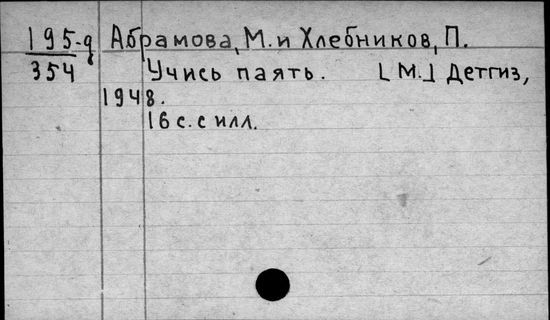 195-д Абрамова, М. и Хлебников, П.
354 Учись паять. [М.] Детгиз,
1948.
16 с. с илл.